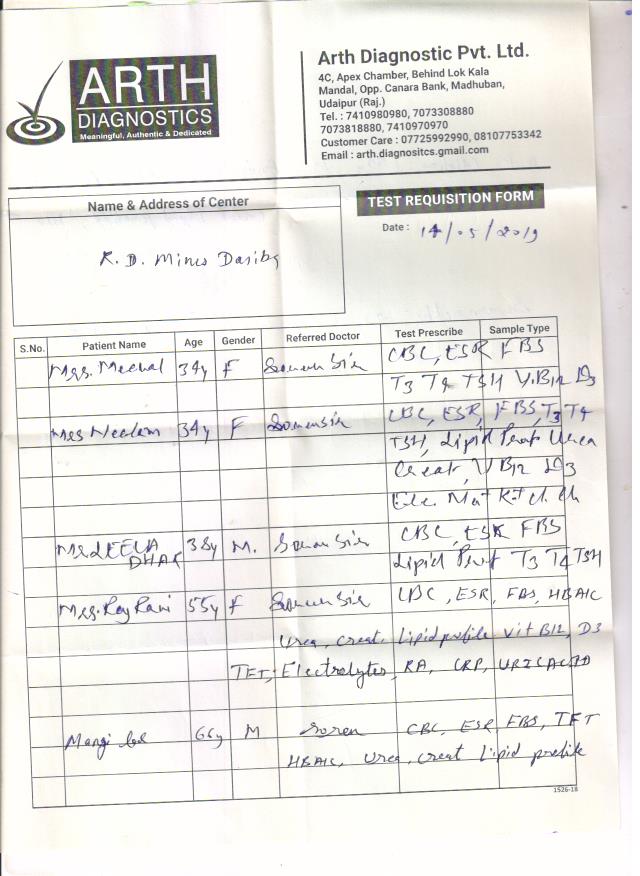 ARTH
DIAGNOSTICS
Meaningful, Authentic & Dedicated
Arth Diagnostic Pvt. Ltd.
4C, Apex Chamber, Behind Lok Kala
Mandal, Opp. Canara Bank, Madhuban,
Udaipur (Raj.)
Tel. : 7410980980, 7073308880
7073818880, 7410970970
Customer Care : 07725992990, 08107753342
Email : arth.diagnositcs.gmail.com
Name & Address of Center
TEST REQUISITION FORM
Date : 14/05/2019
R. D. Mines Dariba
S.No. Patient Name Age Gender Referred Doctor Test Prescribe Sample Type
Mrs. 34y F CBC, ESR FBS
T3 T4 TSH V.B12 D3
Mrs Neelam 34y F CBC, ESR, FBS, T3 T4
TSH, Lipid Prof Urea
Creat, V B12 D3
Ele.
Mr. LEELA 38y M. CBC, ESR FBS
DHAR Lipid Prof T3 T4 TSH
Mrs. Raj Rani 55y F CBC, ESR, FBS, HBA1C
Urea, creat. Lipid profile Vit B12, D3
TFT, Electrolytes, RA, CRP, URIC ACID
Mangi lal 66y M Soren CBC, ESR, FBS, TFT
HBA1C, Urea, creat Lipid profile
1526-18